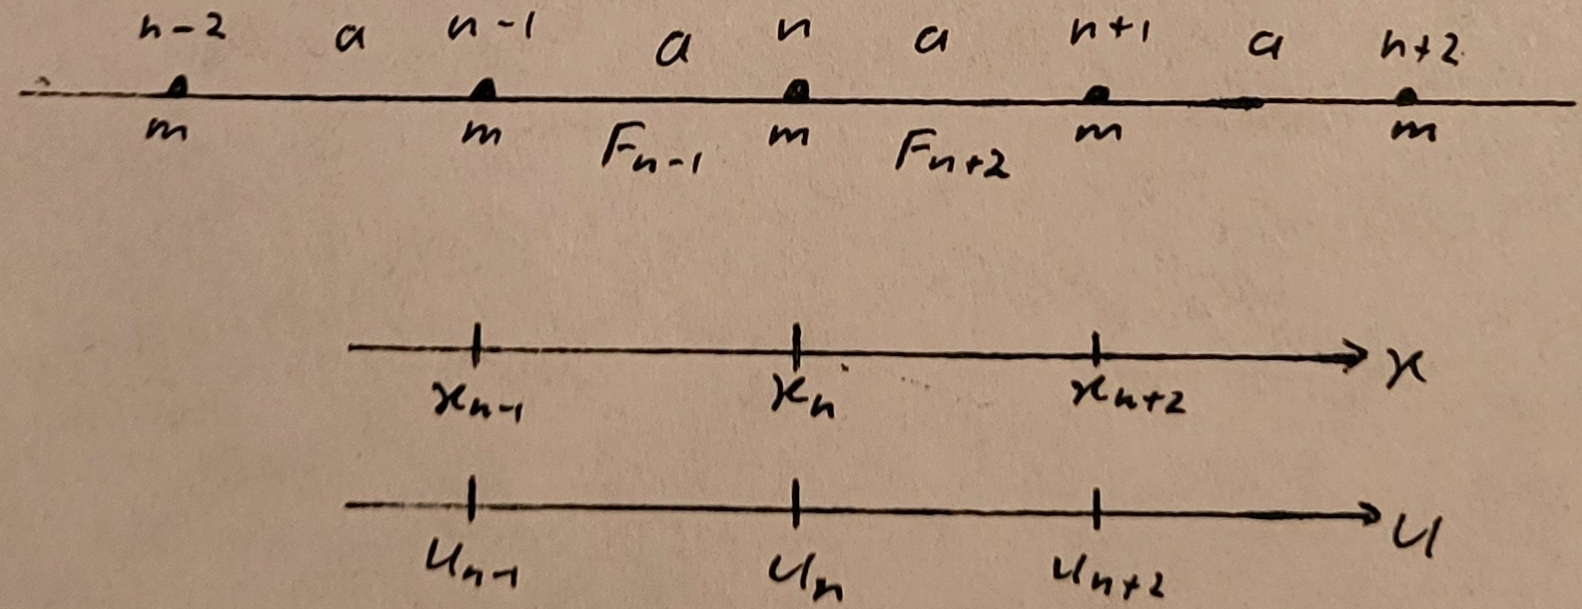 n-2 a n-1 a n a n+1 a n+2
m m F_{n-1} m F_{n+2} m m
x_{n-1} x_n x_{n+2} x
u_{n-1} u_n u_{n+2} u